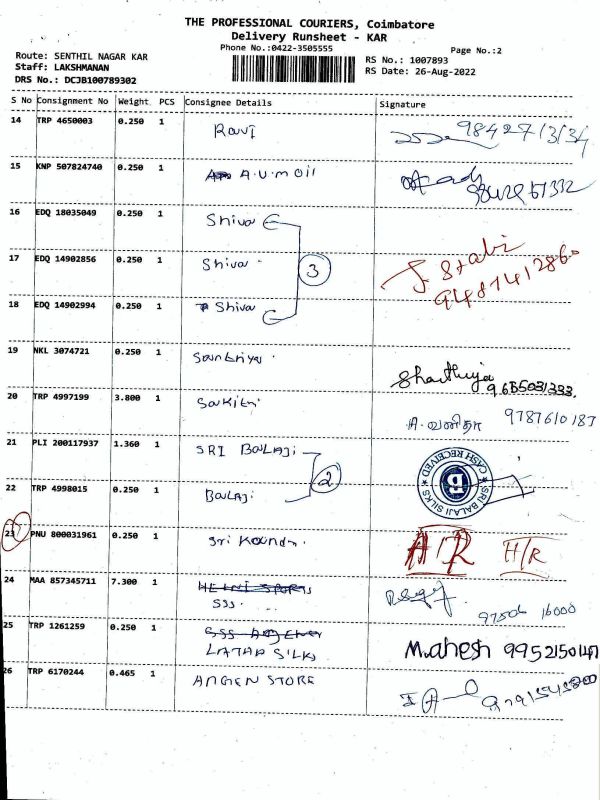 THE PROFESSIONAL COURIERS, Coimbatore
Delivery Runsheet - KAR
Phone No.:0422-3505555
Page No.:2
Route: SENTHIL NAGAR KAR
Staff: LAKSHMANAN
DRS No.: DCJB100789302
RS No.: 1007893
RS Date: 26-Aug-2022
S No Consignment No Weight PCS Consignee Details Signature
14 TRP 4650003 0.250 1 Ravi
15 KNP 507824740 0.250 1 A.U.M Oil
16 EDQ 18035049 0.250 1 Shiva
17 EDQ 14902856 0.250 1 Shiva 3
18 EDQ 14902994 0.250 1 Shiva
19 NKL 3074721 0.250 1
20 TRP 4997199 3.800 1 A. வனிதா 9787610187
21 PLI 200117937 1.360 1 SRI BALAJI
CASH RECEIVED SRI BALAJI SILKS B
22 TRP 4998015 0.250 1 BALAJI 2
23 PNU 800031961 0.250 1 Sri
24 MAA 857345711 7.300 1 SSS.
25 TRP 1261259 0.250 1 LATAP SILKS Mahesh
26 TRP 6170244 0.465 1 ANGEN STORE